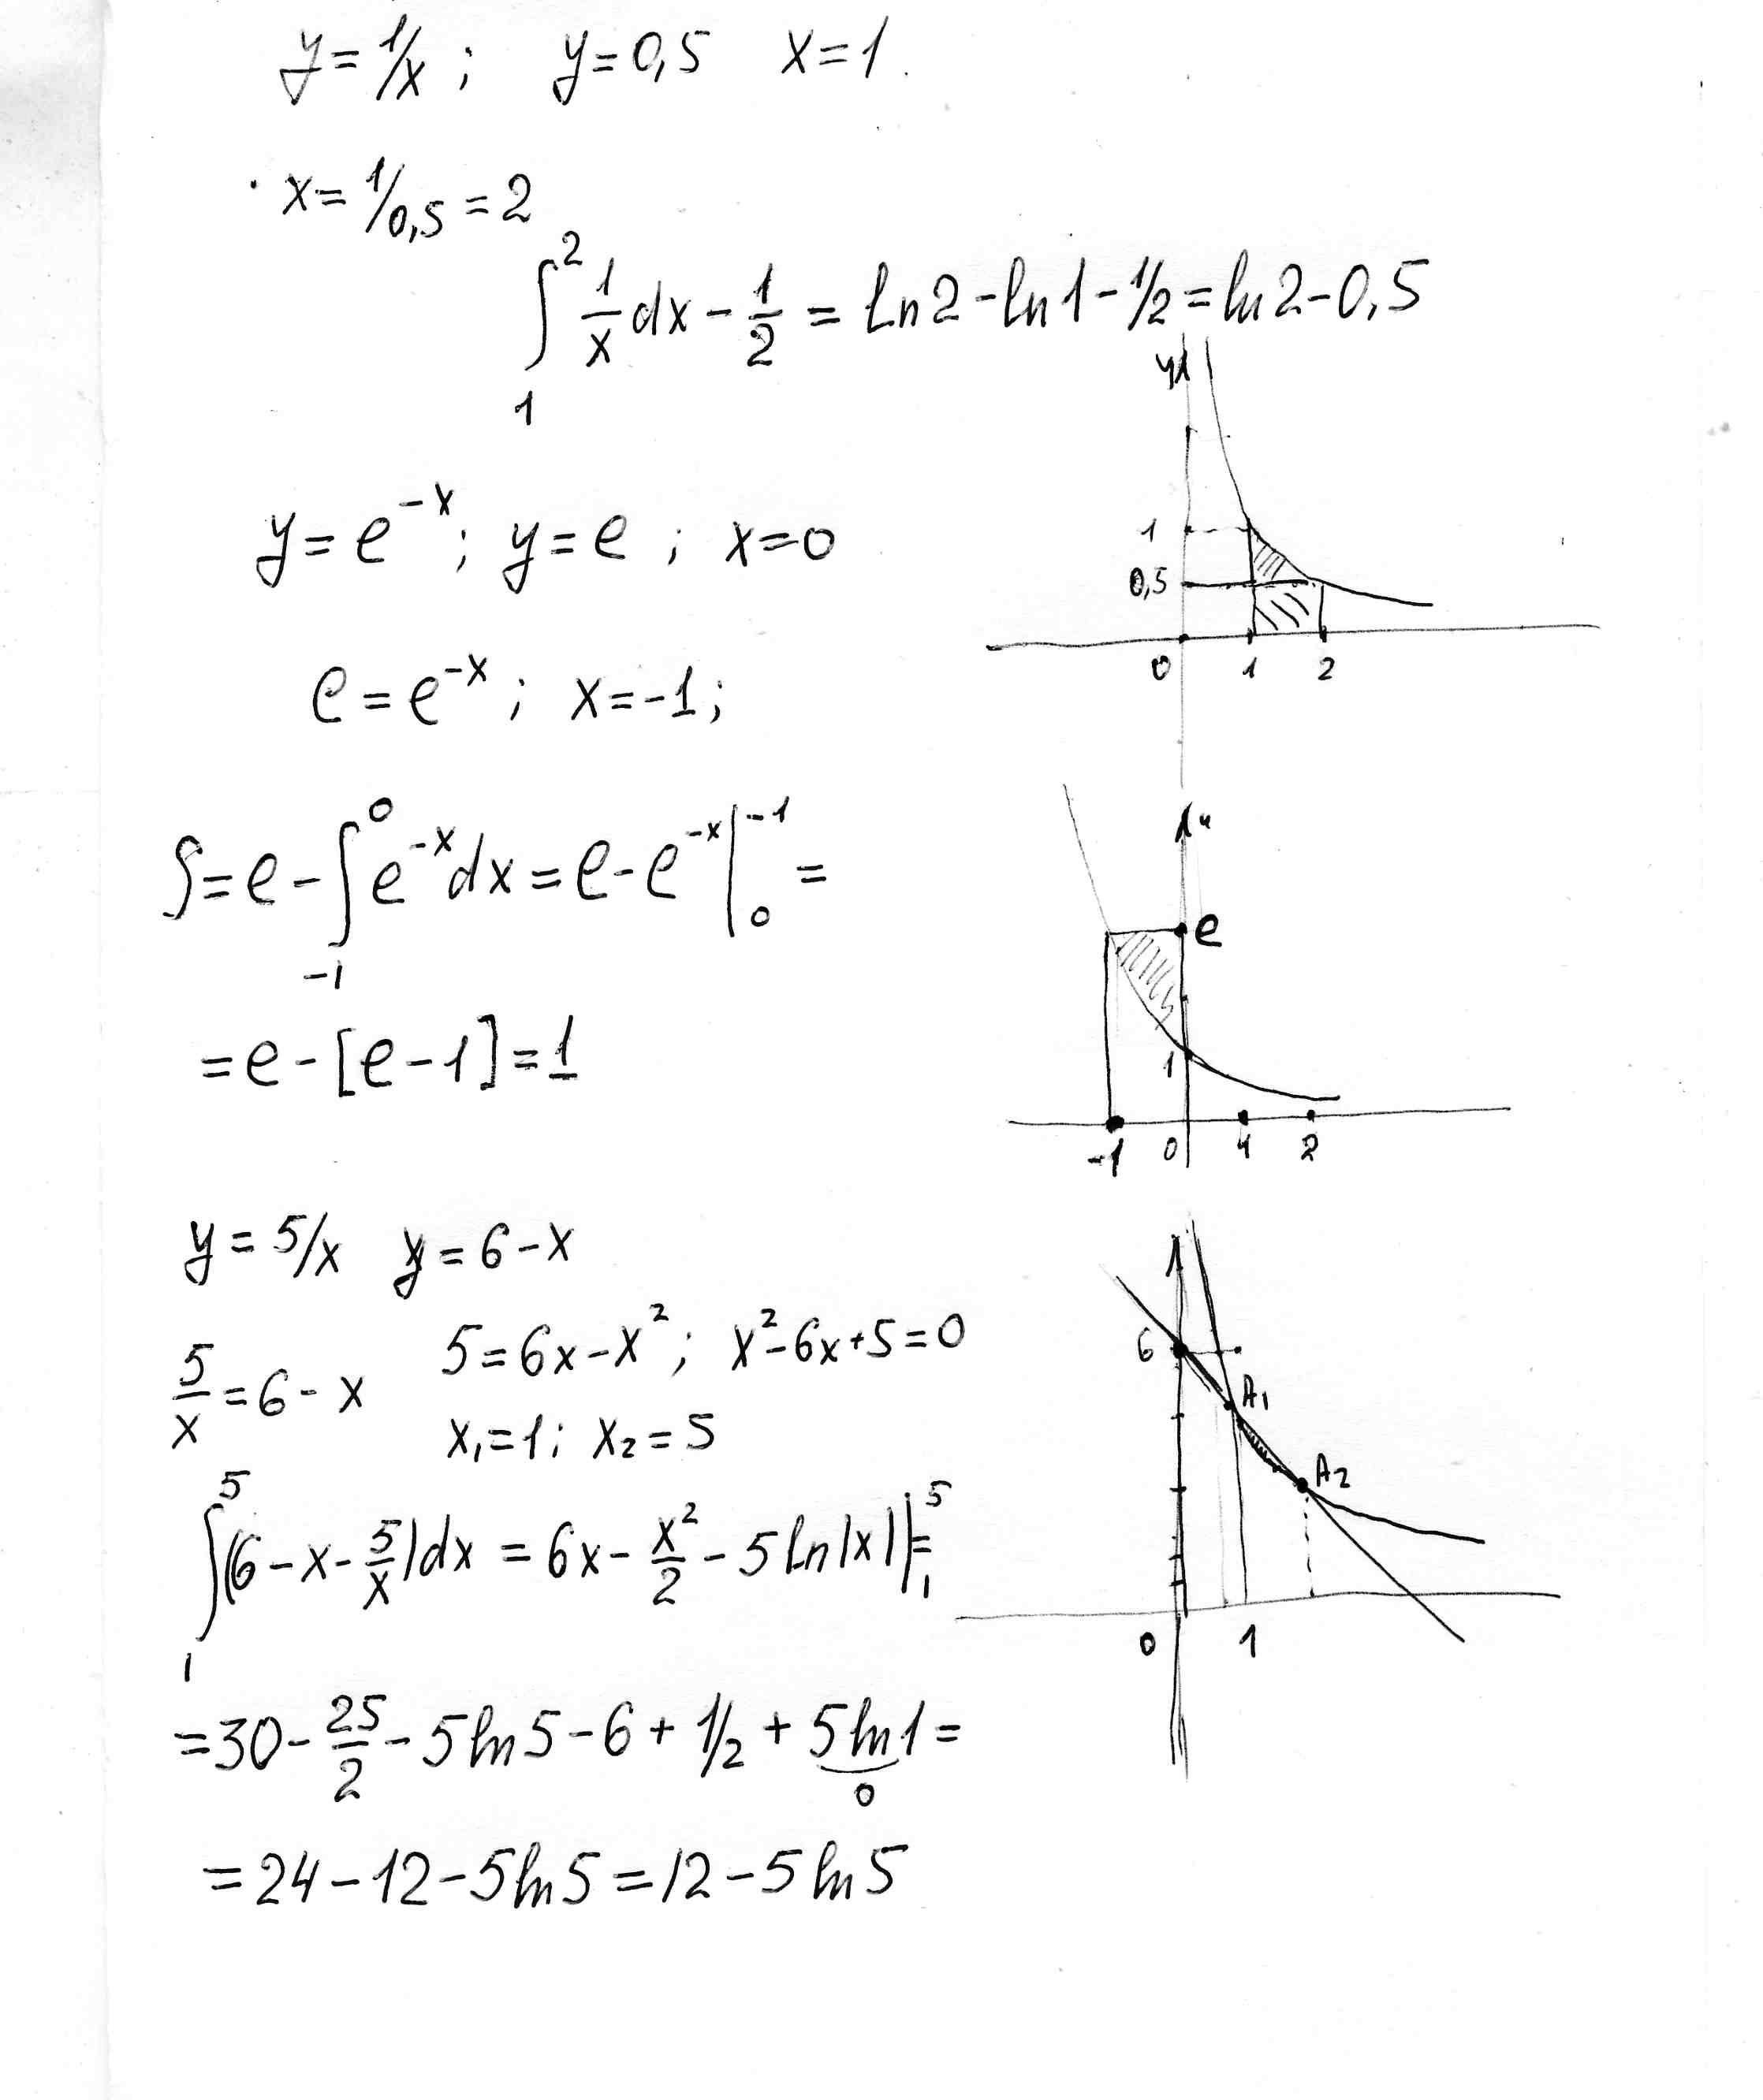 y = 1/x ; y = 0,5 x = 1.
x = 1/0,5 = 2
∫₁² 1/x dx - 1/2 = ln2 - ln1 - 1/2 = ln2 - 0,5
y
1
0,5
0 1 2
y = e^(-x) ; y = e ; x = 0
e = e^(-x) ; x = -1 ;
S = e - ∫₋₁⁰ e^(-x) dx = e - e^(-x) |₀⁻¹ =
= e - [e - 1] = 1
e
1
-1 0 1 2
y = 5/x y = 6 - x
5/x = 6 - x 5 = 6x - x² ; x² - 6x + 5 = 0
x₁ = 1 ; x₂ = 5
∫₁⁵ (6 - x - 5/x) dx = 6x - x²/2 - 5 ln|x| |₁⁵ =
= 30 - 25/2 - 5 ln5 - 6 + 1/2 + 5 ln1 =
0
= 24 - 12 - 5 ln5 = 12 - 5 ln5
6
A₁
A₂
0 1